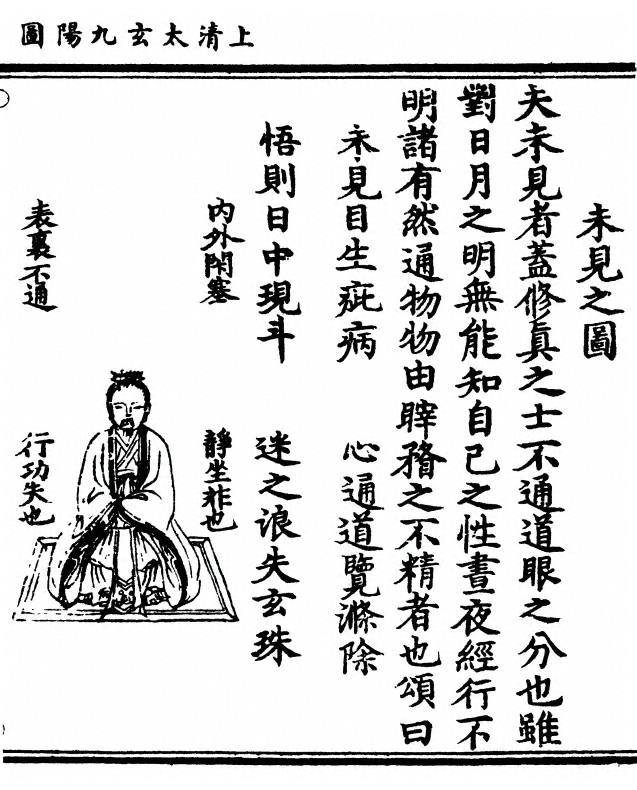 上清太玄九陽圖
未見之圖
夫未見者蓋修真之士不通道眼之分也雖
對日月之明無能知自己之性晝夜經行不
明諸有然通物物由瞀之不精者也頌曰
未見目生疵病　心通道覽滌除
悟則日中現斗　迷之浪失玄珠
內外閇塞
靜坐非也
表裏不通
行功失也